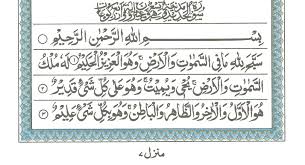 بِسْمِ اللهِ الرَّحْمٰنِ الرَّحِيْمِ
سَبَّحَ لِلّٰهِ مَا فِي السَّمٰوٰتِ وَالْاَرْضِ وَهُوَ الْعَزِيْزُ الْحَكِيْمُ ۝۱ لَهٗ مُلْكُ
السَّمٰوٰتِ وَالْاَرْضِ يُحْيٖ وَيُمِيْتُ وَهُوَ عَلٰى كُلِّ شَيْءٍ قَدِيْرٌ ۝۲
هُوَ الْاَوَّلُ وَالْاٰخِرُ وَالظَّاهِرُ وَالْبَاطِنُ وَهُوَ بِكُلِّ شَيْءٍ عَلِيْمٌ ۝۳
منزل ۷